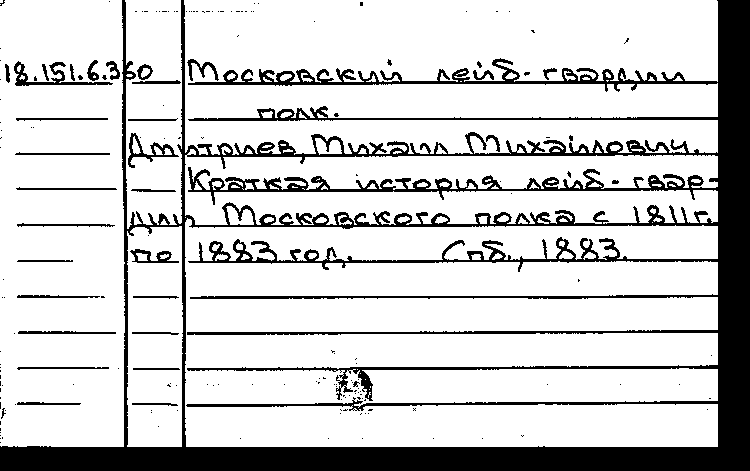 18.151.6.360 Московский лейб-гвардии
полк.
Дмитриев, Михаил Михайлович.
Краткая история лейб-гвар-
дии Московского полка с 1811г.
по 1883 год. Спб., 1883.